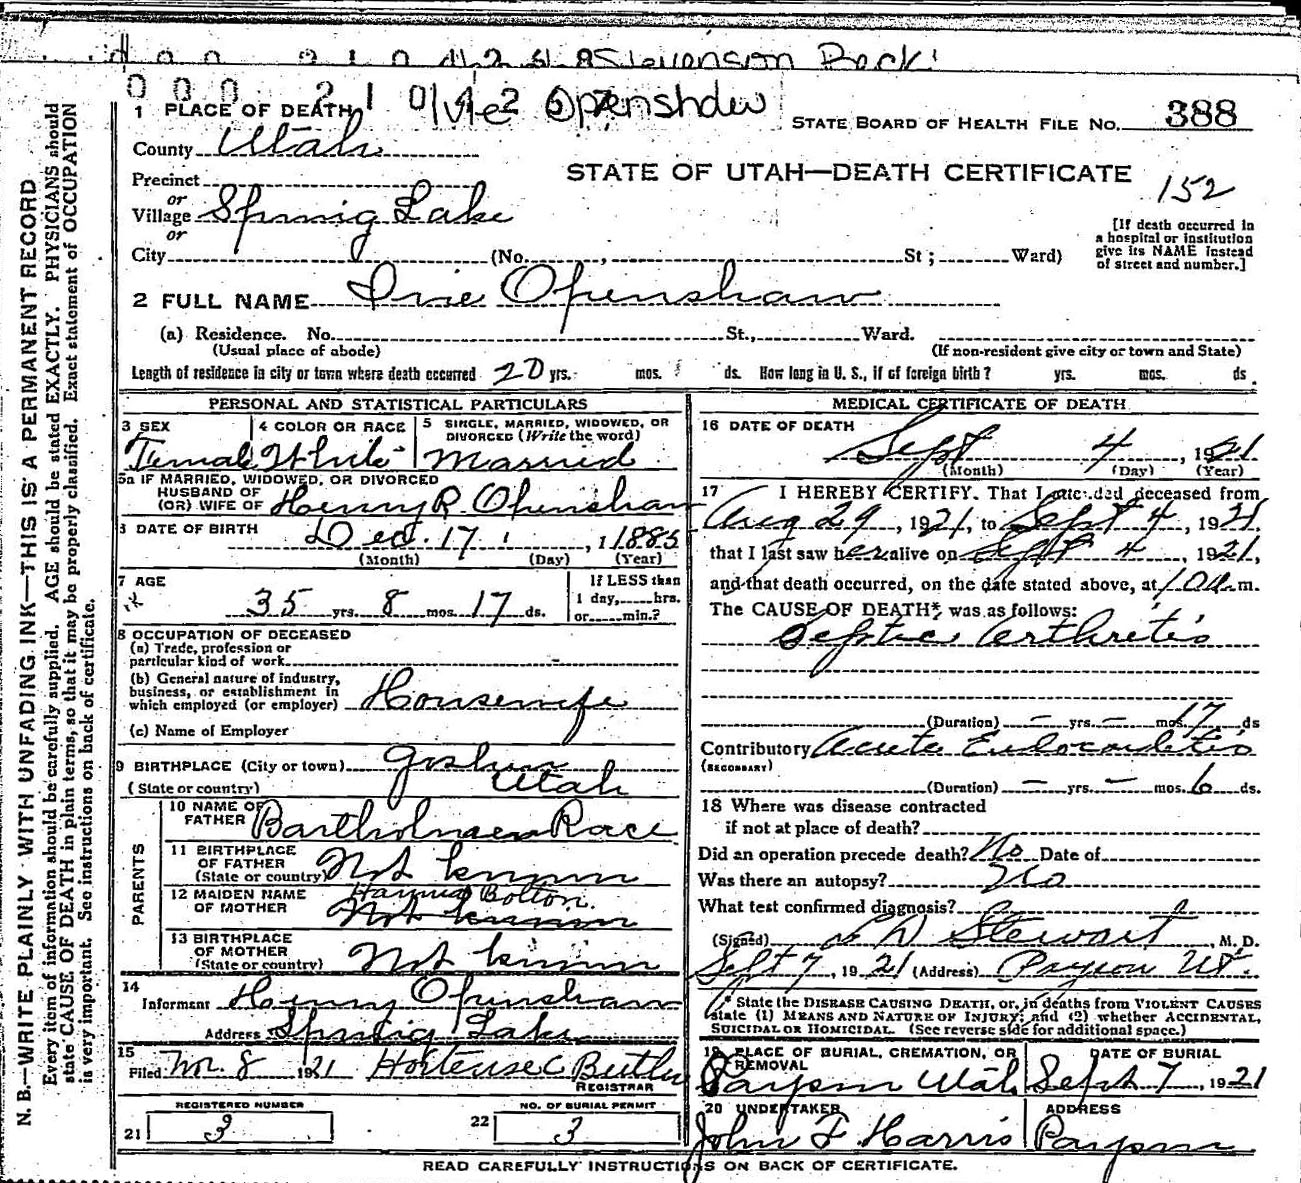 Stevenson Rock
000 210 Openshaw
1 PLACE OF DEATH
STATE BOARD OF HEALTH FILE NO. 388
County Utah
STATE OF UTAH—DEATH CERTIFICATE
152
Precinct
or
Village Spring Lake
or
City (No. , St ; Ward)
[If death occurred in
a hospital or institution
give its NAME instead
of street and number.]
2 FULL NAME Ivie Openshaw
(a) Residence. No. St., Ward.
(Usual place of abode) (If non-resident give city or town and State)
Length of residence in city or town where death occurred 20 yrs. mos. ds. How long in U. S., if of foreign birth? yrs. mos. ds.
PERSONAL AND STATISTICAL PARTICULARS
3 SEX 4 COLOR OR RACE 5 SINGLE, MARRIED, WIDOWED, OR
DIVORCED (Write the word)
Female White Married
5a IF MARRIED, WIDOWED, OR DIVORCED
HUSBAND OF
(OR) WIFE OF Henry R. Openshaw
6 DATE OF BIRTH Dec. 17, 1885
(Month) (Day) (Year)
7 AGE If LESS than
35 yrs. 8 mos. 17 ds. 1 day, hrs.
or min.?
8 OCCUPATION OF DECEASED
(a) Trade, profession or
particular kind of work
(b) General nature of industry,
business, or establishment in
which employed (or employer) Housewife
(c) Name of Employer
9 BIRTHPLACE (City or town) Goshen
(State or country) Utah
PARENTS
10 NAME OF
FATHER Bartholmew Race
11 BIRTHPLACE
OF FATHER
(State or country) Not known
12 MAIDEN NAME
OF MOTHER Bolton.
Not known
13 BIRTHPLACE
OF MOTHER
(State or country) Not known
14
Informant Henry Openshaw
Address Spring Lake
15
Filed 8 1921 Hortense C Butler
REGISTRAR
REGISTERED NUMBER NO. OF BURIAL PERMIT
21 3 22 3
MEDICAL CERTIFICATE OF DEATH
16 DATE OF DEATH
Sept 4, 1921
(Month) (Day) (Year)
17 I HEREBY CERTIFY. That I attended deceased from
Aug 29, 1921, to Sept 4, 1921
that I last saw her alive on Sept 4, 1921,
and that death occurred, on the date stated above, at m.
The CAUSE OF DEATH* was as follows:
Septic Arthretis
(Duration) – yrs. – mos. 17 ds
Contributory Acute Endocarditis
(SECONDARY)
(Duration) – yrs. – mos. 6 ds.
18 Where was disease contracted
if not at place of death?
Did an operation precede death? No Date of
Was there an autopsy? No
What test confirmed diagnosis?
(Signed) Stewart, M. D.
Sept 7, 1921 (Address) Payson Ut.
* State the DISEASE CAUSING DEATH, or, in deaths from VIOLENT CAUSES
state (1) MEANS AND NATURE OF INJURY; and (2) whether ACCIDENTAL,
SUICIDAL OR HOMICIDAL. (See reverse side for additional space.)
19 PLACE OF BURIAL, CREMATION, OR
REMOVAL DATE OF BURIAL
Payson Utah Sept 7, 1921
20 UNDERTAKER ADDRESS
John F Harris Payson
READ CAREFULLY INSTRUCTIONS ON BACK OF CERTIFICATE.
N. B.—WRITE PLAINLY WITH UNFADING INK—THIS IS A PERMANENT RECORD
Every item of information should be carefully supplied. AGE should be stated EXACTLY. PHYSICIANS should
state CAUSE OF DEATH in plain terms, so that it may be properly classified. Exact statement of OCCUPATION
is very important. See instructions on back of certificate.